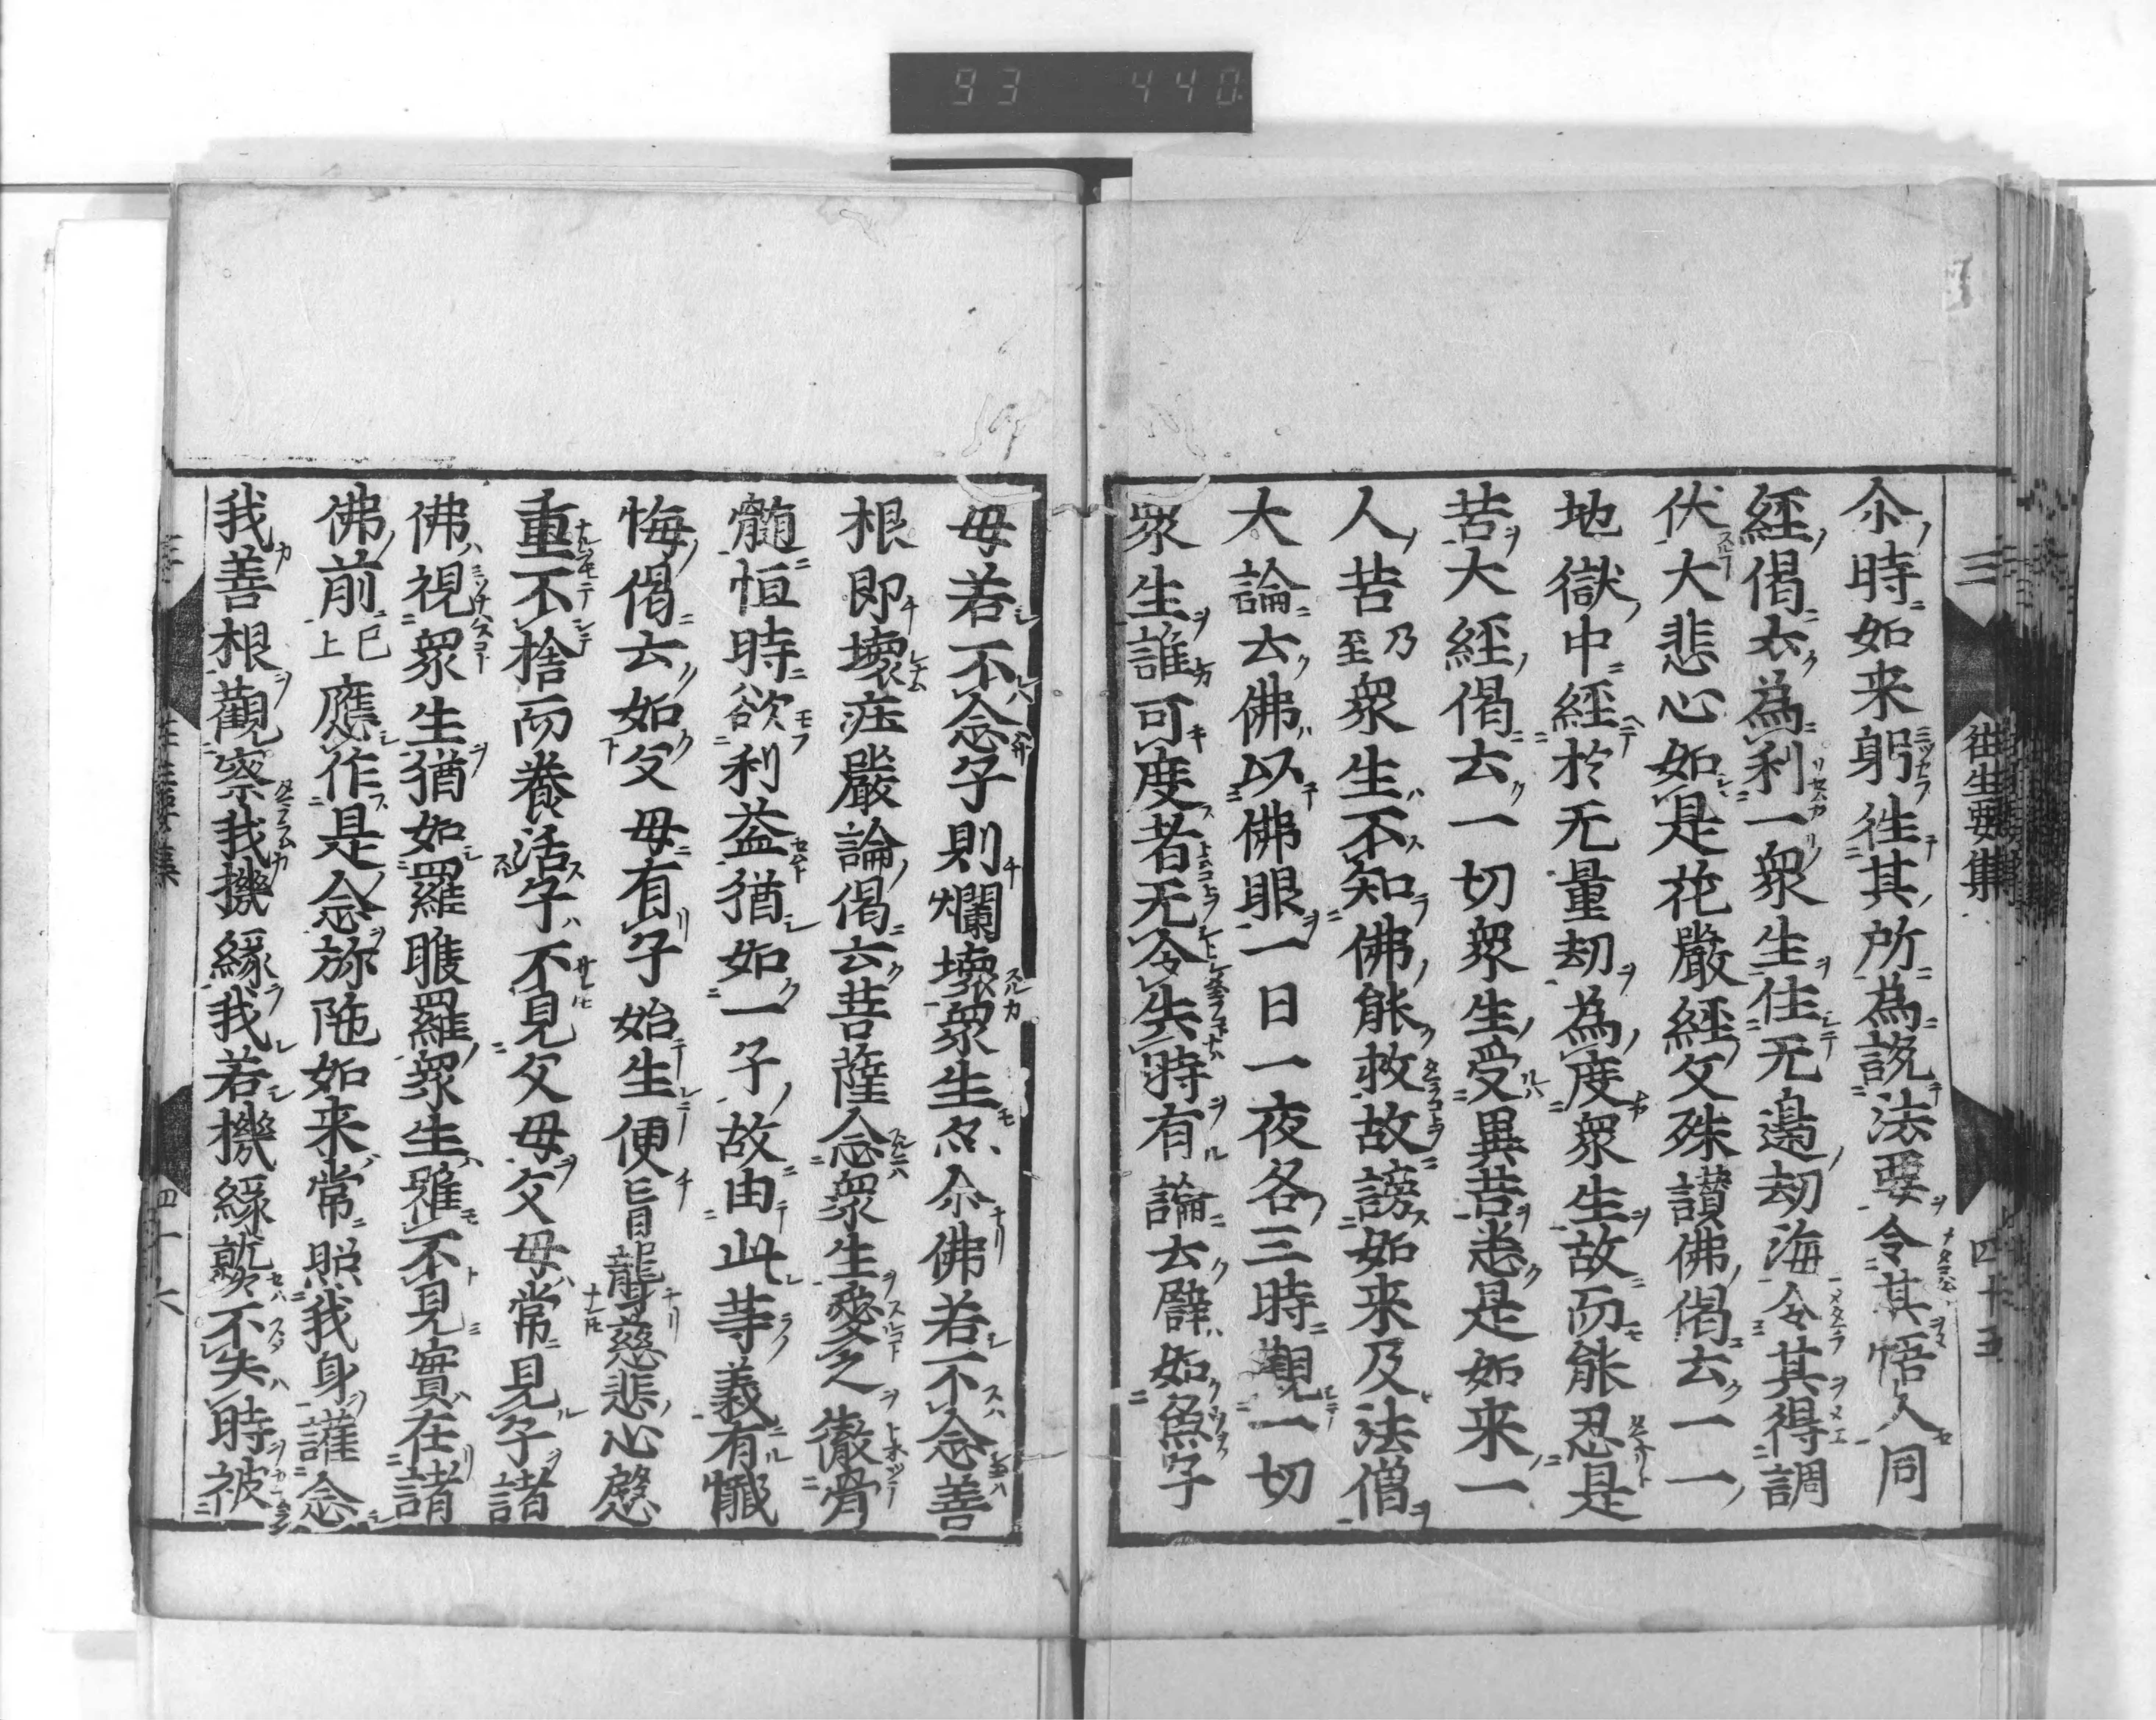 93 440
三 往生要集 四十五
尒時如来躬往其所為説法要令其悟入同
經偈云為利一衆生住无邊劫海令其得調
伏大悲心如是花嚴經文殊讃佛偈云一一
地獄中經於无量劫為度衆生故而能忍是
苦大經偈云一切衆生受異苦悉是如来一
人苦乃至衆生不知佛能救故謗如来及法僧
大論云佛以佛眼一日一夜各三時觀一切
衆生誰可度者无令失時有論云譬如魚子
母若不念子則爛壞衆生亦尒佛若不念善
根即壞庄嚴論偈云菩薩念衆生愛之徹骨
髓恒時欲利益猶如一子故由此等義有懺
悔偈云如父母有子始生便盲聾慈悲心慇
重不捨而養活子不見父母父母常見子諸
佛視衆生猶如羅睺羅衆生雖不見實在諸
佛前已上應作是念弥陁如来常照我身護念
我善根觀察我機緣我若機緣熟不失時被
四十六